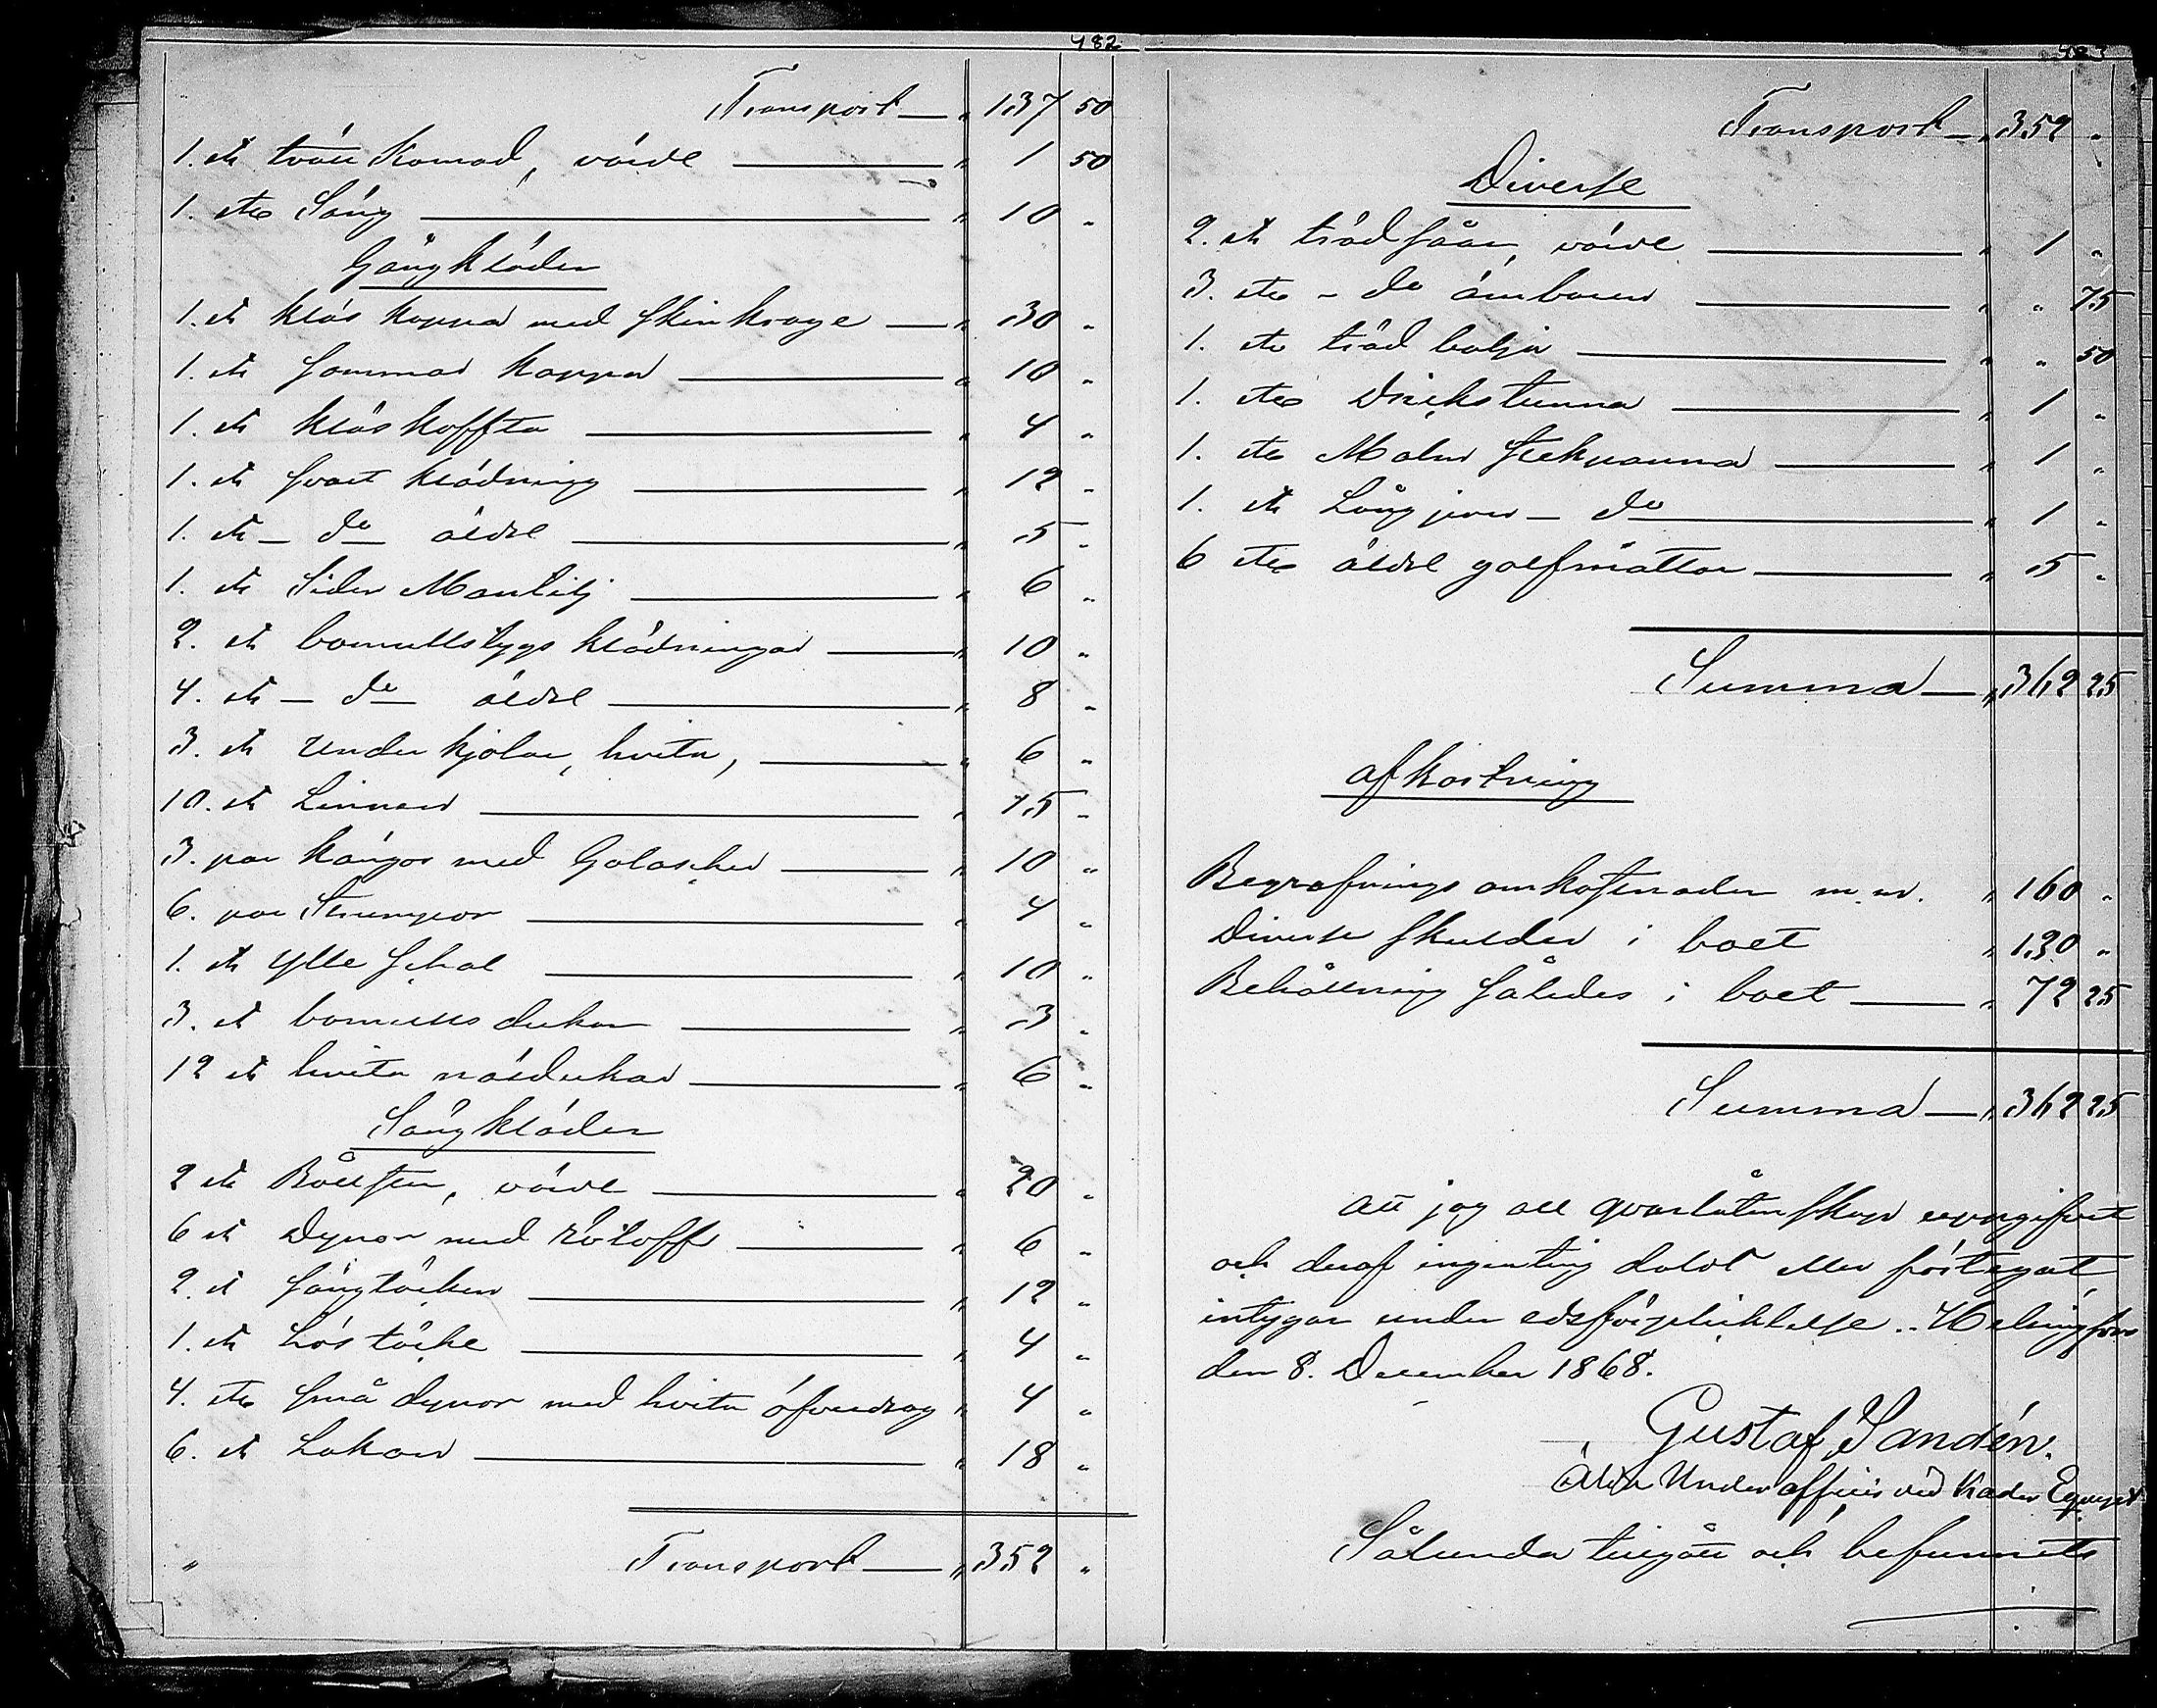 482
Transport — " 137 50
1. st tvätt Komod, värde " 1 50
1. st Säng " 10 "
Gångkläder
1. st kläs kappa med skinkrage " 30 "
1. st sommar kappa " 10 "
1. st kläs koffta " 4 "
1. st svart klädning " 12 "
1. st - do - äldre " 5 "
1. st Siden Mantilj " 6 "
2. st bomullstygs klädningar " 10 "
4. st - do - äldre " 8 "
3. st Underkjolar, hvita, " 6 "
10. st Linnen " 15 "
3. par kängor med Galoscher " 10 "
6. par Strumpor " 4 "
1. st ylle schal " 10 "
3. st bomulls dukar " 3 "
12 st hvita näsdukar " 6 "
Sängkläder
2 st Bolster, värde " 20 "
6 st Dynor med " 6 "
2. st sängtäcken " 12 "
1. st Lös täcke " 4 "
4. st små dynor med hvita öfverdrag " 4 "
6. st Lakan " 18 "
" Transport — " 352 "
483
Transport — " 352 "
Diverse
2. st träd såar, värde " 1 "
3. st - do ämbaren " " 75
1. st träd balja " " 50
1. st Drickstunna " 1 "
1. st Malm stekpanna " 1 "
1. st Lång jern - do " 1 "
6 st äldre golfmattor " 5 "
Summa — " 362 25
afkortning
Begrafnings omkostnader m.m. " 160 "
Diverse skulder i boet " 130 "
Behållning således i boet — " 72 25
Summa — " 362 25
Att jag all qvarlåtenskap uppgifvit
och deraf ingenting doldt eller förtegat,
intygar under edsförpliktelse. Helsingfors
den 8. December 1868.
Gustaf Sandén.
Äldre Underofficer vid Kader
Sålunda tillgått och befunnits